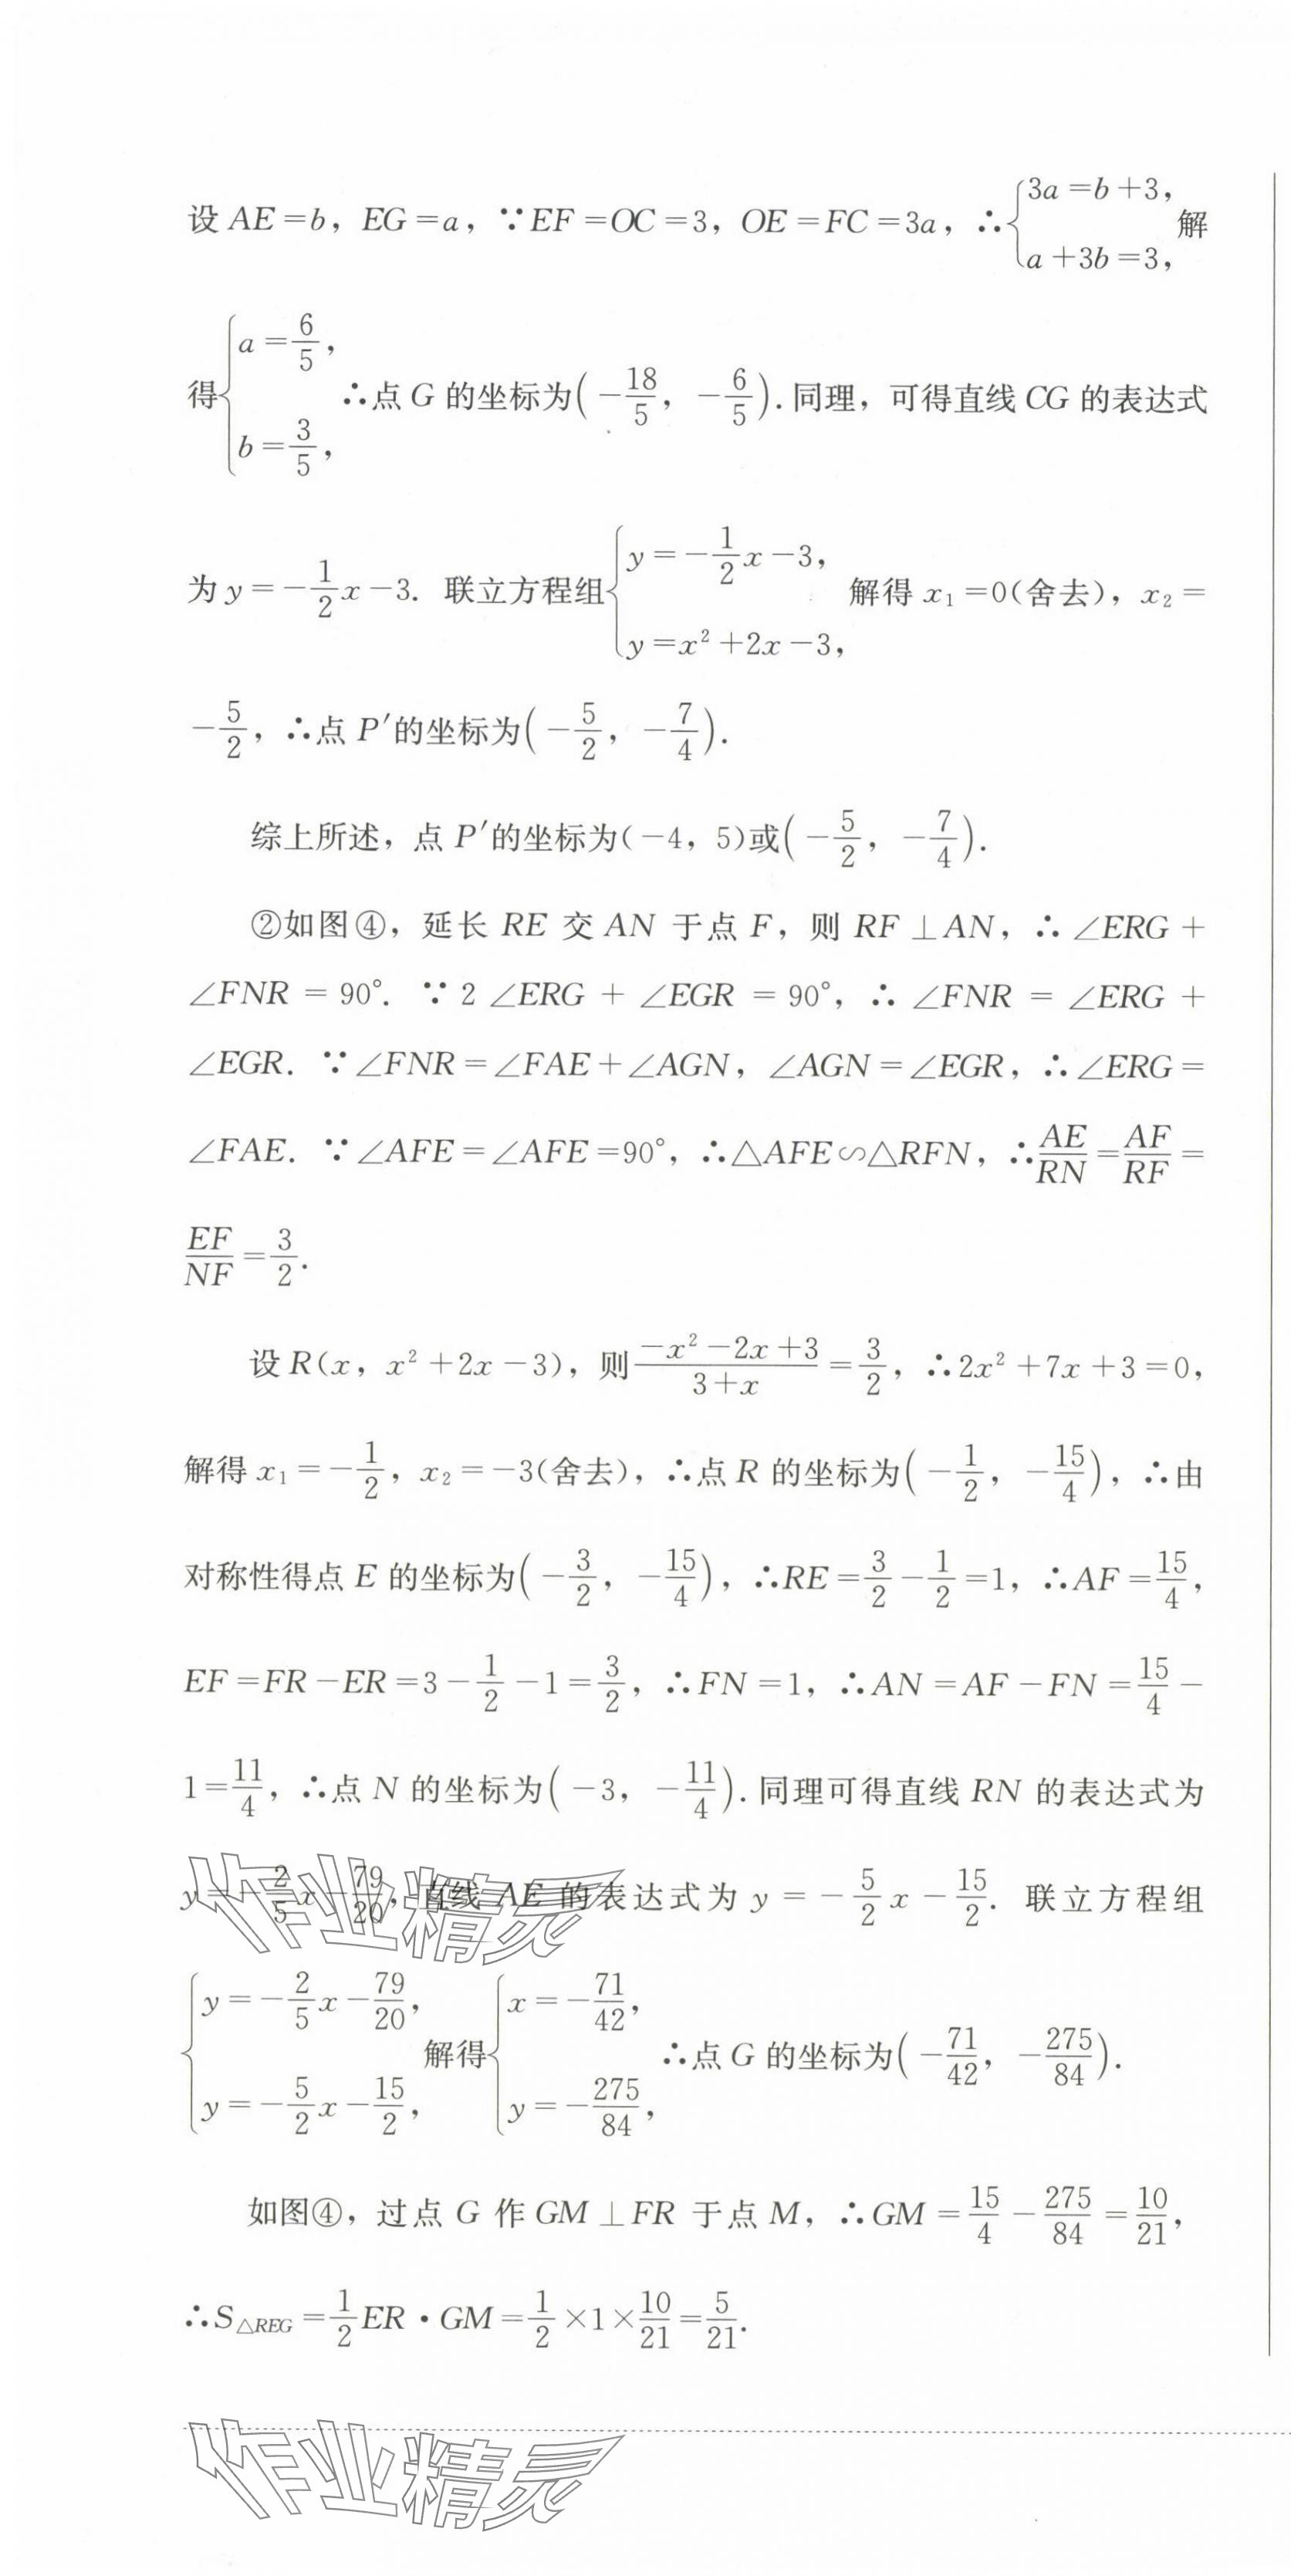 设 AE=b，EG=a，∵EF=OC=3，OE=FC=3a，∴{3a=b+3，a+3b=3，解
得{a=6/5，b=3/5，∴点 G 的坐标为(-18/5，-6/5). 同理，可得直线 CG 的表达式
为 y=-1/2x-3. 联立方程组{y=-1/2x-3，y=x²+2x-3，解得 x₁=0(舍去)，x₂=
-5/2，∴点 P′的坐标为(-5/2，-7/4).
综上所述，点 P′的坐标为(-4，5)或(-5/2，-7/4).
②如图④，延长 RE 交 AN 于点 F，则 RF⊥AN，∴∠ERG+
∠FNR=90°. ∵2∠ERG+∠EGR=90°，∴∠FNR=∠ERG+
∠EGR. ∵∠FNR=∠FAE+∠AGN，∠AGN=∠EGR，∴∠ERG=
∠FAE. ∵∠AFE=∠AFE=90°，∴△AFE∽△RFN，∴AE/RN=AF/RF=
EF/NF=3/2.
设 R(x，x²+2x-3)，则(-x²-2x+3)/(3+x)=3/2，∴2x²+7x+3=0，
解得 x₁=-1/2，x₂=-3(舍去)，∴点 R 的坐标为(-1/2，-15/4)，∴由
对称性得点 E 的坐标为(-3/2，-15/4)，∴RE=3/2-1/2=1，∴AF=15/4，
EF=FR-ER=3-1/2-1=3/2，∴FN=1，∴AN=AF-FN=15/4-
1=11/4，∴点 N 的坐标为(-3，-11/4). 同理可得直线 RN 的表达式为
y=-2/5x-79/20，直线 AE 的表达式为 y=-5/2x-15/2. 联立方程组
{y=-2/5x-79/20，y=-5/2x-15/2，解得{x=-71/42，y=-275/84，∴点 G 的坐标为(-71/42，-275/84).
如图④，过点 G 作 GM⊥FR 于点 M，∴GM=15/4-275/84=10/21，
∴S△REG=1/2ER·GM=1/2×1×10/21=5/21.
作业精灵
作业精灵